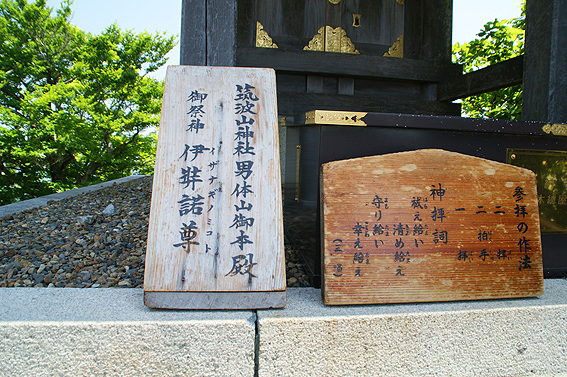 筑波山神社男体山御本殿
御祭神 伊弉諾尊
イザナギノミコト
参拝の作法
二拝
二拍手
一拝
神拝詞
祓え給い
清め給え
守り給い
幸え給え